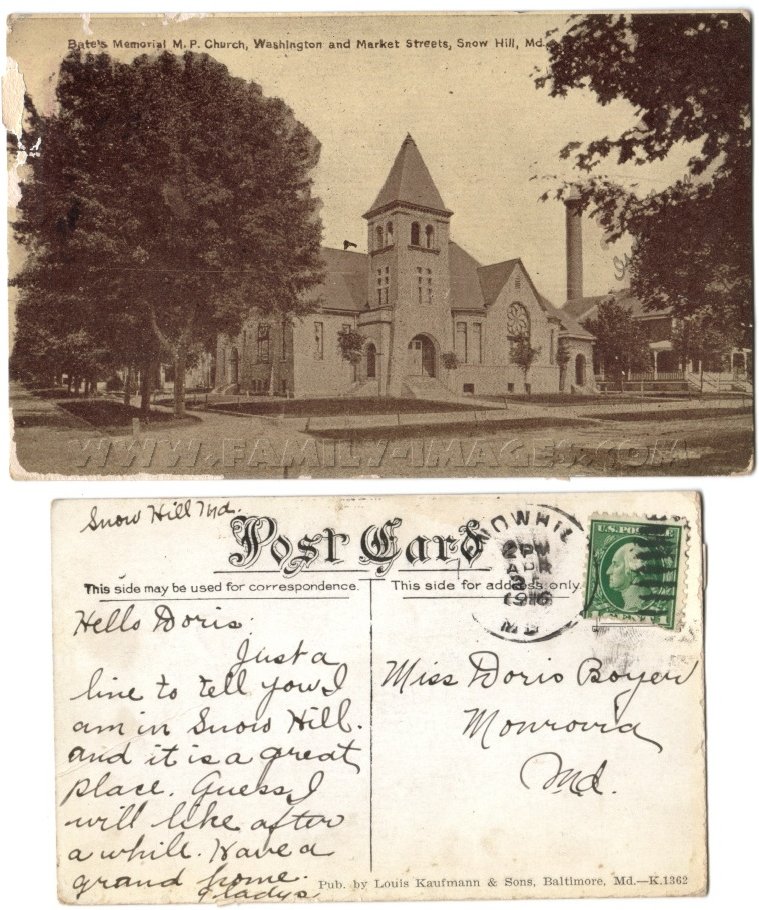 Bate's Memorial M. P. Church, Washington and Market Streets, Snow Hill, Md.
WWW.FAMILY-IMAGES.COM
Snow Hill Md.
Post Card
This side may be used for correspondence.
This side for address only.
SNOW HILL
2 PM
APR
1916
MD
U.S. POSTAGE
Hello Doris.
Just a
line to tell you I
am in Snow Hill.
and it is a great
place. Guess I
will like after
a while. Have a
grand home.
Gladys
Miss Doris Boyer
Monrovia
Md.
Pub. by Louis Kaufmann & Sons, Baltimore, Md.—K.1362